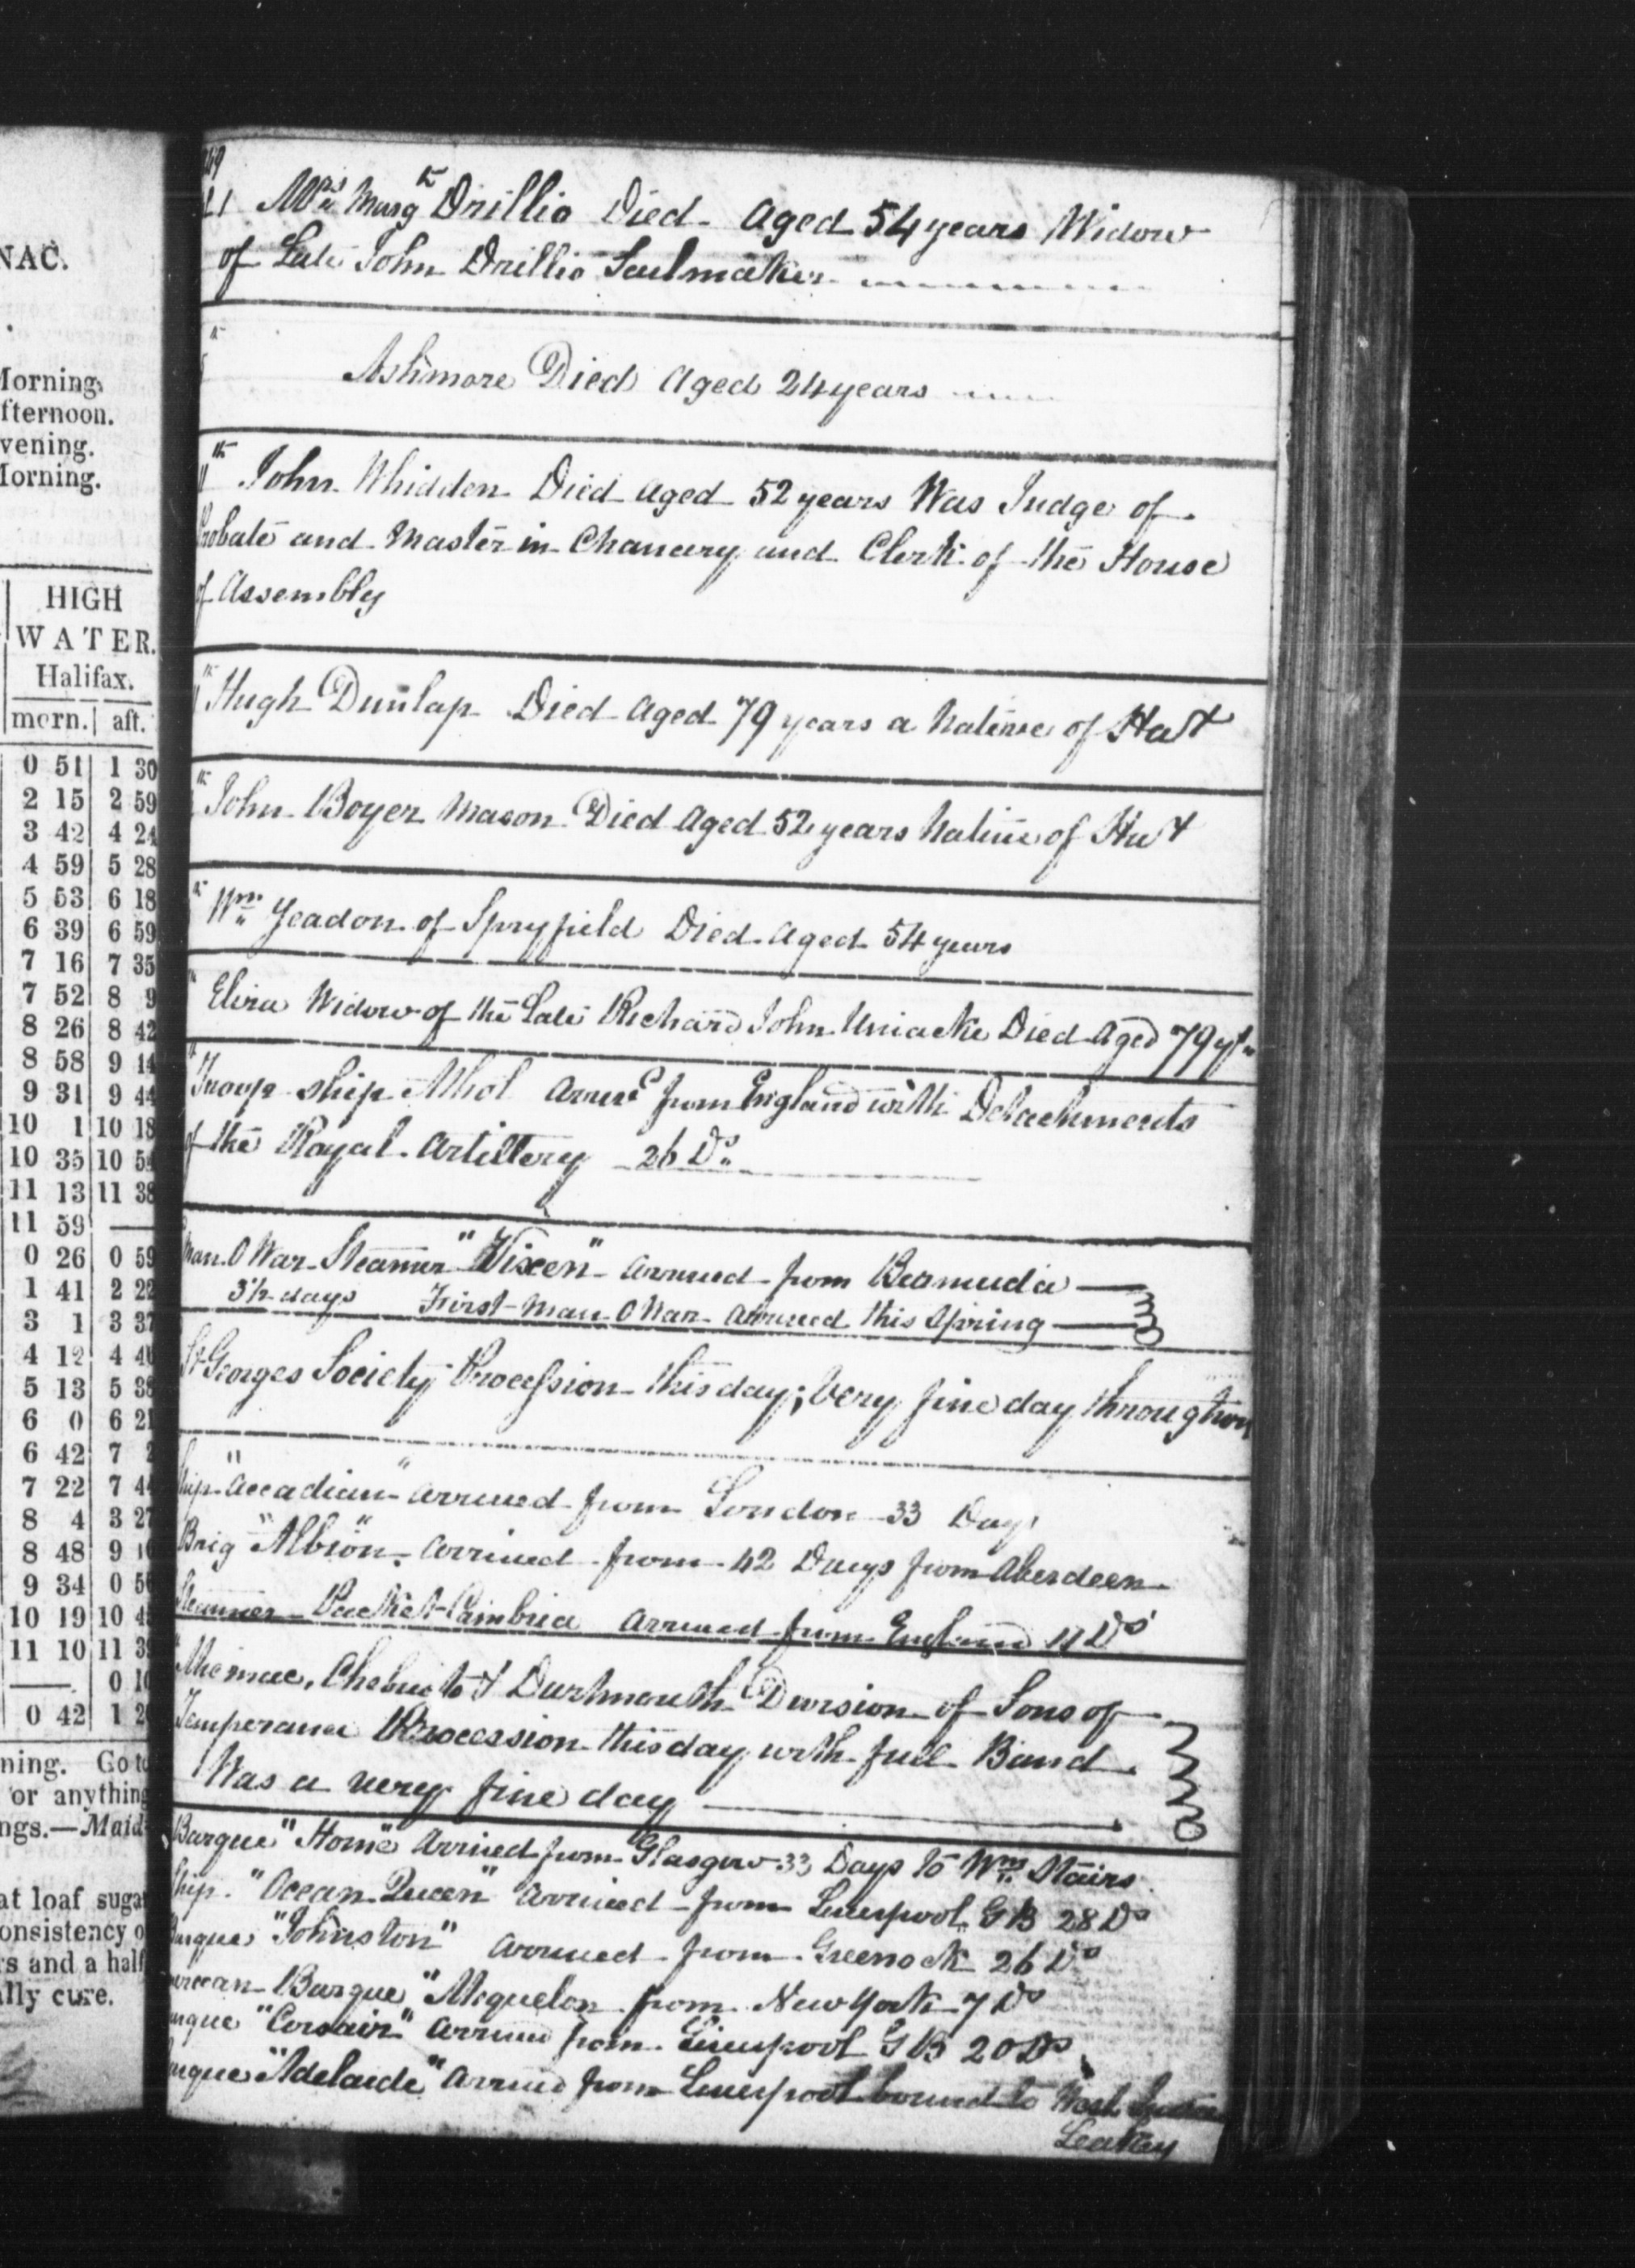 NAC.
Morning.
fternoon.
vening.
Morning.
HIGH
WATER.
Halifax.
morn. | aft.
0 51 | 1 30
2 15 | 2 59
3 42 | 4 24
4 59 | 5 28
5 53 | 6 18
6 39 | 6 59
7 16 | 7 35
7 52 | 8 9
8 26 | 8 42
8 58 | 9 14
9 31 | 9 44
10 1 | 10 18
10 35 | 10 54
11 13 | 11 38
11 59 | —
0 26 | 0 59
1 41 | 2 22
3 1 | 3 37
4 12 | 4 4
5 13 | 5 38
6 0 | 6 21
6 42 | 7 2
7 22 | 7 44
8 4 | 3 27
8 48 | 9 1
9 34 | 0 5
10 19 | 10 4
11 10 | 11 3
— | 0 10
0 42 | 1 2
ning. Go to
or anything
ngs.—Maid
at loaf sugar
onsistency o
rs and a half
lly cure.
49
21 Mrs Margt Drillio Died - aged 54 years Widow
of Late John Drillio Sailmaker
Ashmore Died aged 24 years
11th John Whidden Died aged 52 years Was Judge of
Probate and Master in Chancery and Clerk of the House
of Assembly
Hugh Dunlap Died aged 79 years a Native of Hax
John Boyer Mason Died aged 52 years Native of Hax
Wm Yeadon of Spryfield Died aged 54 years
Eliza Widow of the Late Richard John Uniacke Died aged 79 yrs
Troop ship Athol arrivd from England with Detachments
of the Royal Artillery 26 Ds
Man O War Steamer "Vixen" arrived from Bermuda
3½ days First Man O War arrived this Spring
St Georges Society Procession this day; very fine day throughout
Ship "Accadian" arrived from London 33 Days
Brig "Albion" arrived from 42 Days from Aberdeen
Steamer Packet Cambria arrived from England 11 Ds
Micmac, Chebucto & Dartmouth Division of Sons of
Temperance Procession this day with full Band
Was a very fine day
Barque "Home" arrived from Glasgow 33 Days to Wm Stairs
Ship "Ocean Queen" arrived from Liverpool GB 28 Ds
Barque "Johnston" arrived from Greenock 26 Ds
American Barque "Miquelon from New York 7 Ds
Barque "Corsair" arrived from Liverpool GB 20 Ds
Barque "Adelaide" arrived from Liverpool bound to West Indies
Leakey